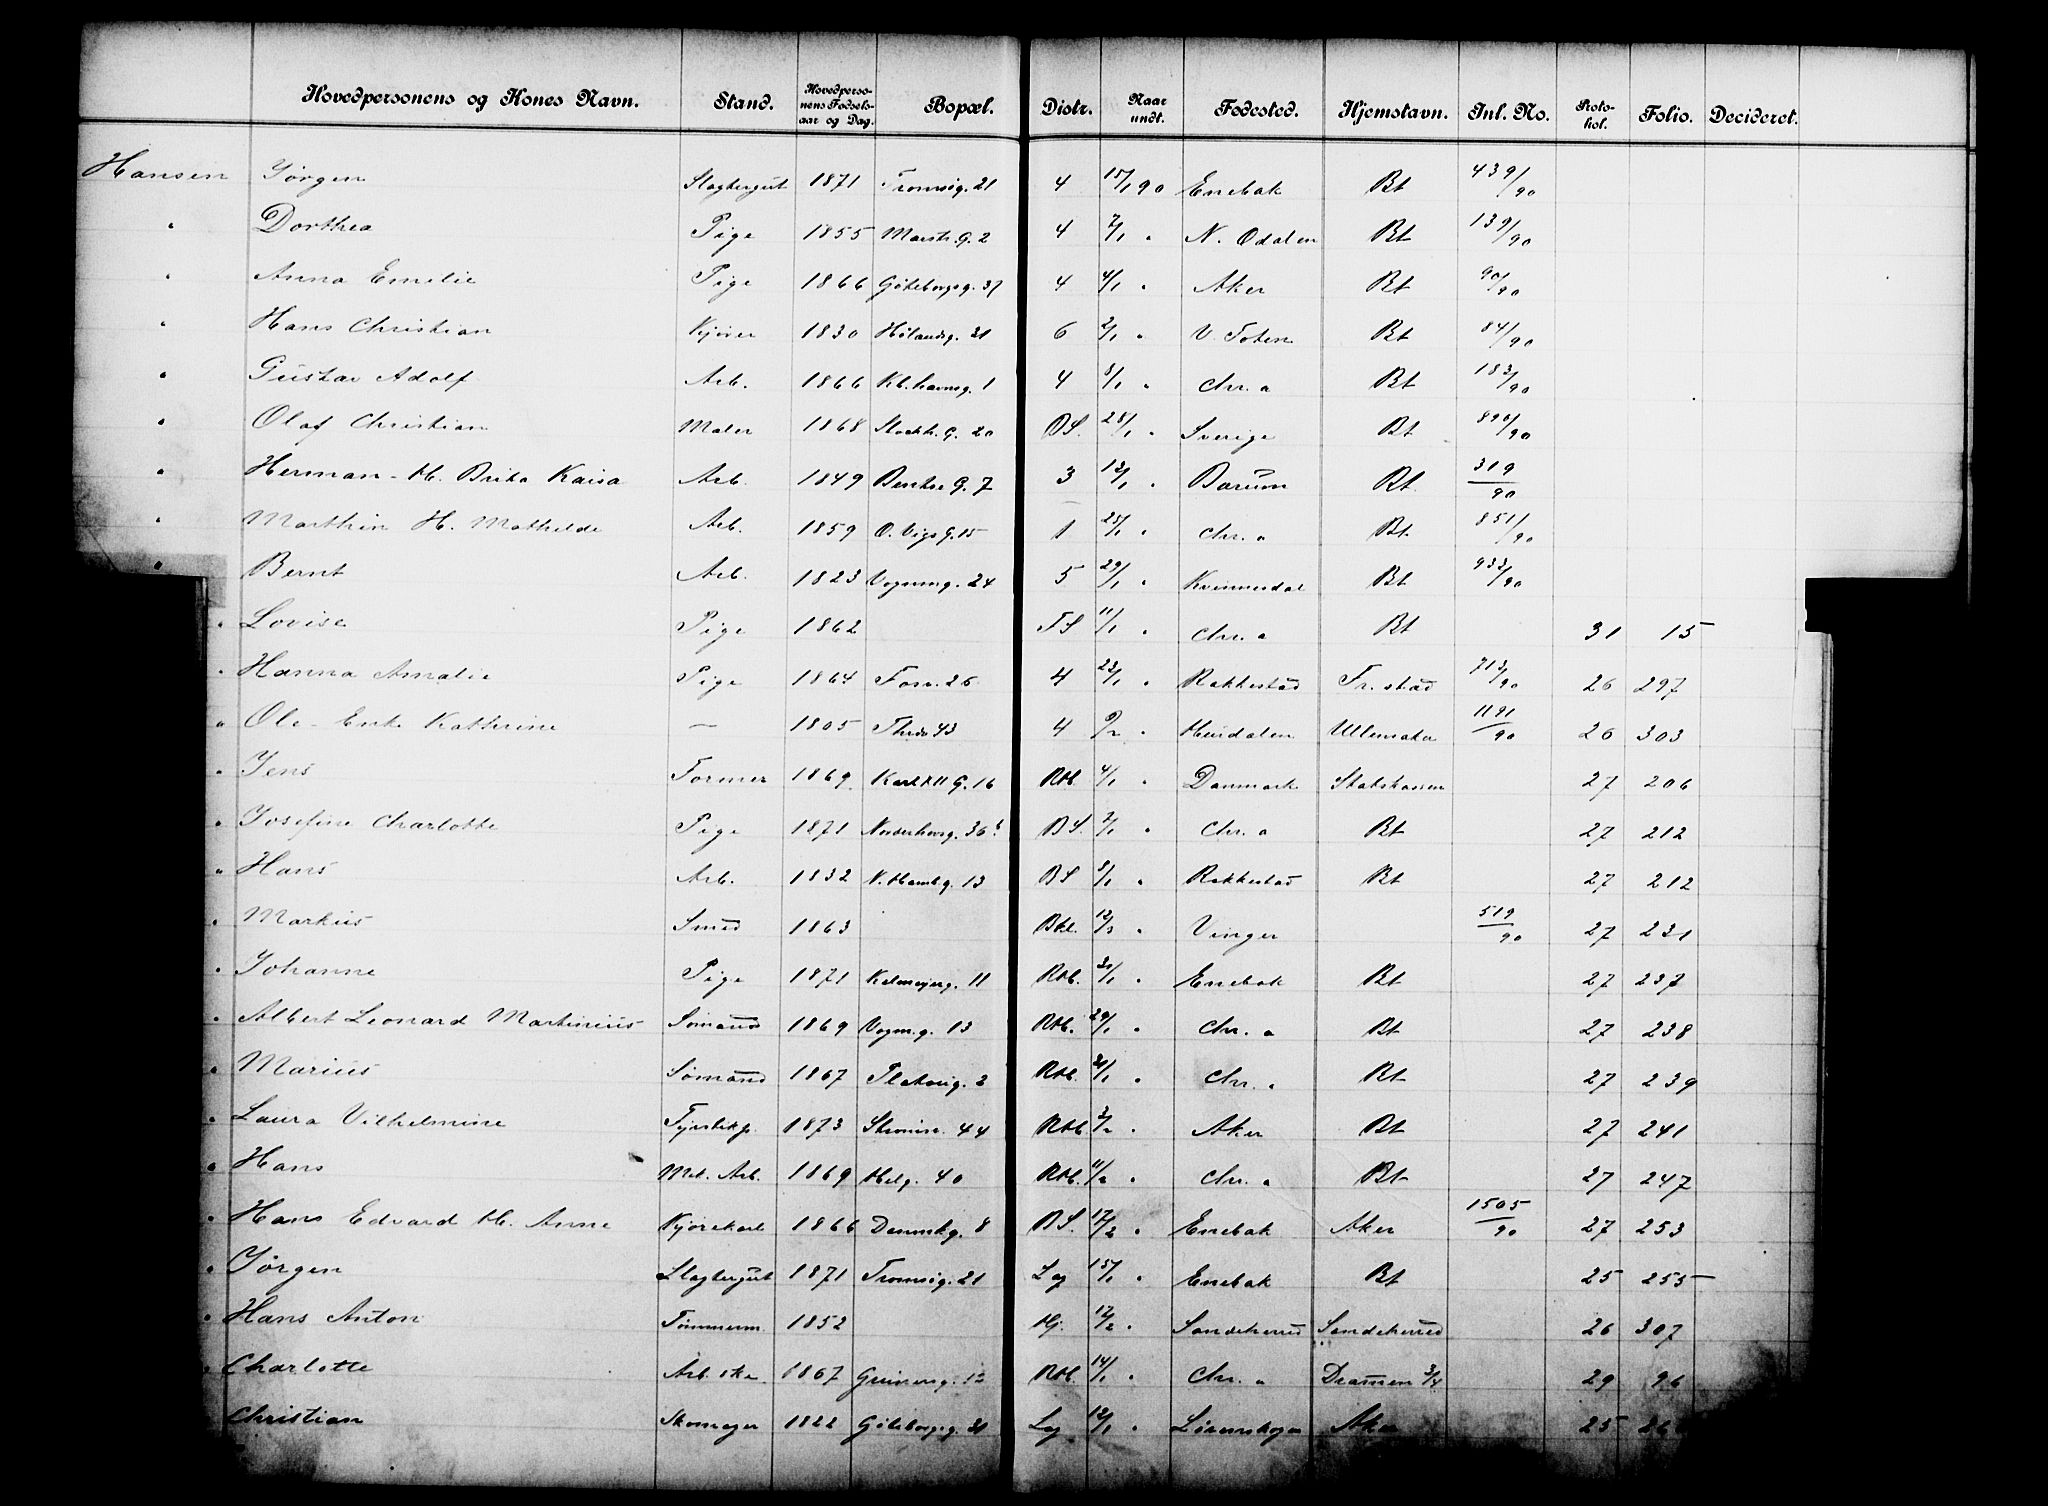 Hovedpersonens og Kones Navn. Stand. Hovedpersonens Fødselsaar og Dag. Bopæl. Distr. Naar undt. Fødested. Hjemstavn. Inl. No. Protokol. Folio. Decideret.
Hansen Jørgen Slagtergut 1871 Tromsøg. 21 4 15/1 90 Enebak Bt 439/90
" Dorthea Pige 1855 Marstr. G. 2 4 7/1 " N. Odalen Bt 139/90
" Anna Emilie Pige 1866 Göteborgsg. 37 4 4/1 " Aker Bt 90/90
" Hans Christian Kjører 1830 Hølandsg. 31 6 2/1 " V. Toten Bt 84/90
" Gustav Adolf Arb. 1866 Kb.havnsg. 1 4 8/1 " Chr. a Bt 183/90
" Olaf Christian Maler 1868 Stockh. G. 20 BS. 28/1 " Sverige Bt 890/90
" Herman - H. Brita Kaisa Arb. 1849 Bentse G. 7 3 13/1 " Barum Bt. 319/90
" Marthin H. Mathilde Arb. 1859 O. Vigs G. 15 1 25/1 " Chr. a Bt. 851/90
" Bernt Arb. 1823 Vognmg. 24 5 29/1 " Kvinnesdal Bt 933/90
" Lovise Pige 1862 FS 11/1 " Chr. a Bt 31 15
" Hanna Amalie Pige 1864 Fossv. 26 4 23/1 " Rakkestad Fr. stad 713/90 26 297
" Ole - Enke Kathrine — 1805 Thrds 43 4 9/2 " Hurdalen Ullensaker 1191/90 26 303
" Jens Former 1869 Karl XII G. 16 Rtb. 4/1 " Danmark Statskassen 27 206
" Josefine Charlotte Pige 1871 Norderhovsg. 36 b BS. 2/1 " Chr. a Bt 27 212
" Hans Arb. 1832 N. Hambg. 13 BS 8/1 " Rakkestad Bt 27 212
" Markus Smed 1863 12/3 " Vinger 519/90 27 231
" Johanne Pige 1871 Kalmeyerg. 11 Rtb. 21/1 " Enebak Bt 27 237
" Albert Leonard Martinius Sømand 1869 Vogm. g. 13 Rtb. 29/1 " Chr. a Bt 27 238
" Marius Sømand 1867 Platousg. 2 Rtb. " Chr. a Bt 27 239
" Laura Vilhelmine Tjenstepg. 1873 Strømsv. 44 Rtb. 3/2 " Aker Bt 27 241
" Hans Mek. Arb. 1869 Helg. 40 Rtb. 11/2 " Chr. a Bt 27 247
" Hans Edvard H. Anne Kjørekarl 1866 Dannebg. 8 BS. 17/2 " Enebak Aker 1505/90 27 253
" Jørgen Slagtergut 1871 Tromsøg. 21 Lg 15/1 " Enebak Bt 25 255
" Hans Anton Tømmerm. 1852 Hj. 12/2 " Sandeherred Sandeherred 26 307
" Charlotte Arb. ske 1867 Grünersg. 12 Rtb. 14/1 " Chr. a Dramen 3/4 29 96
Christian Skomager 1822 Göteborgsg. 31 Lg 12/1 " Lørenskogen Aker 25